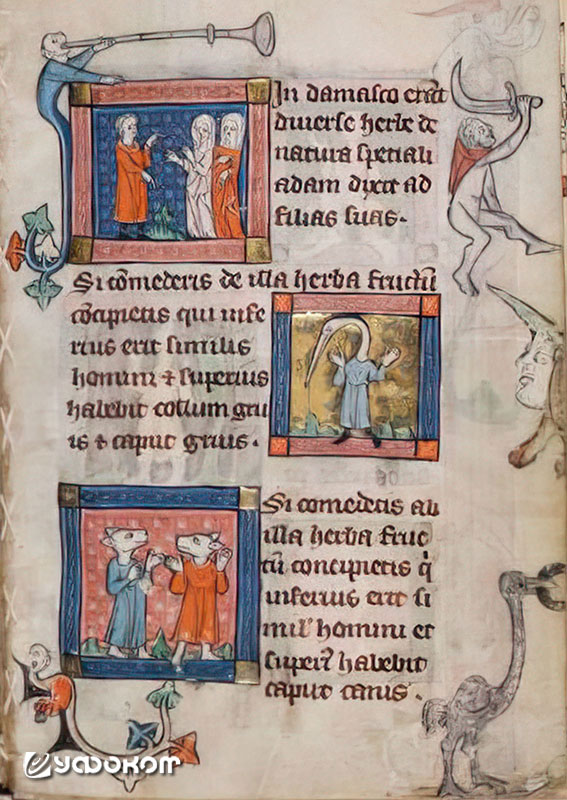 In damasco erãt
diuerse herbe de
natura speciali
adam dixit ad
filias suas.
Si cõmederis de illa herba fructũ
cõcipietis qui infe
rius erit similis
homini ⁊ superius
habebit collum gru
is ⁊ caput gruis.
Si comederis ab
illa herba fruc
tũ concipietis q̇
inferius erit si
mil' homini et
superꝰ habebit
caput canis.
УФОКОМ